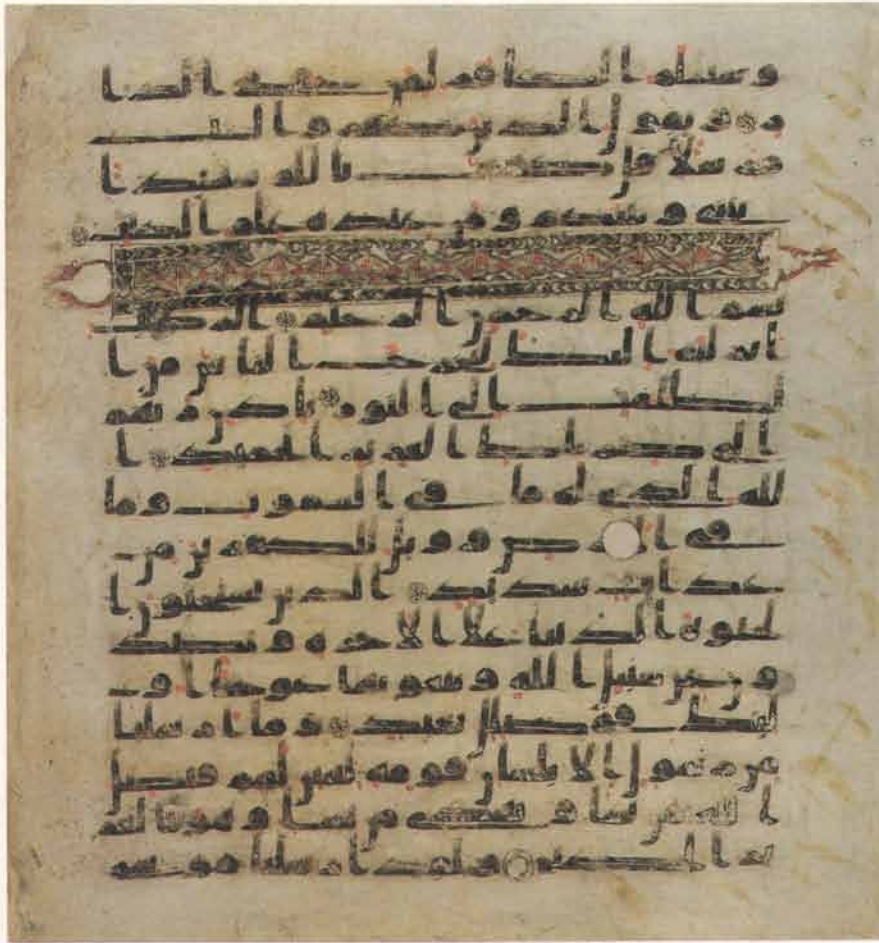 وسيعلم الكفر لمن عقبى الدا
ر ويقول الذين كفروا لست
مرسلا قل كفى بالله شهيدا
بيني وبينكم ومن عنده علم الكتب
بسم الله الرحمن الرحيم الر كتب
انزلنه اليك لتخرج الناس من ا
لظلمت الى النور باذن ربهم
الى صرط العزيز الحميد ا
لله الذي له ما في السموت وما
في الارض وويل للكفرين من
عذاب شديد الذين يستحبون ا
لحيوة الدنيا على الاخرة ويصد
ون عن سبيل الله ويبغونها عوجا او
لئك في ضلل بعيد وما ارسلنا
من رسول الا بلسان قومه ليبين لهم فيضل
الله من يشا ويهدي من يشا وهو العز
يز الحكيم ولقد ارسلنا موسى